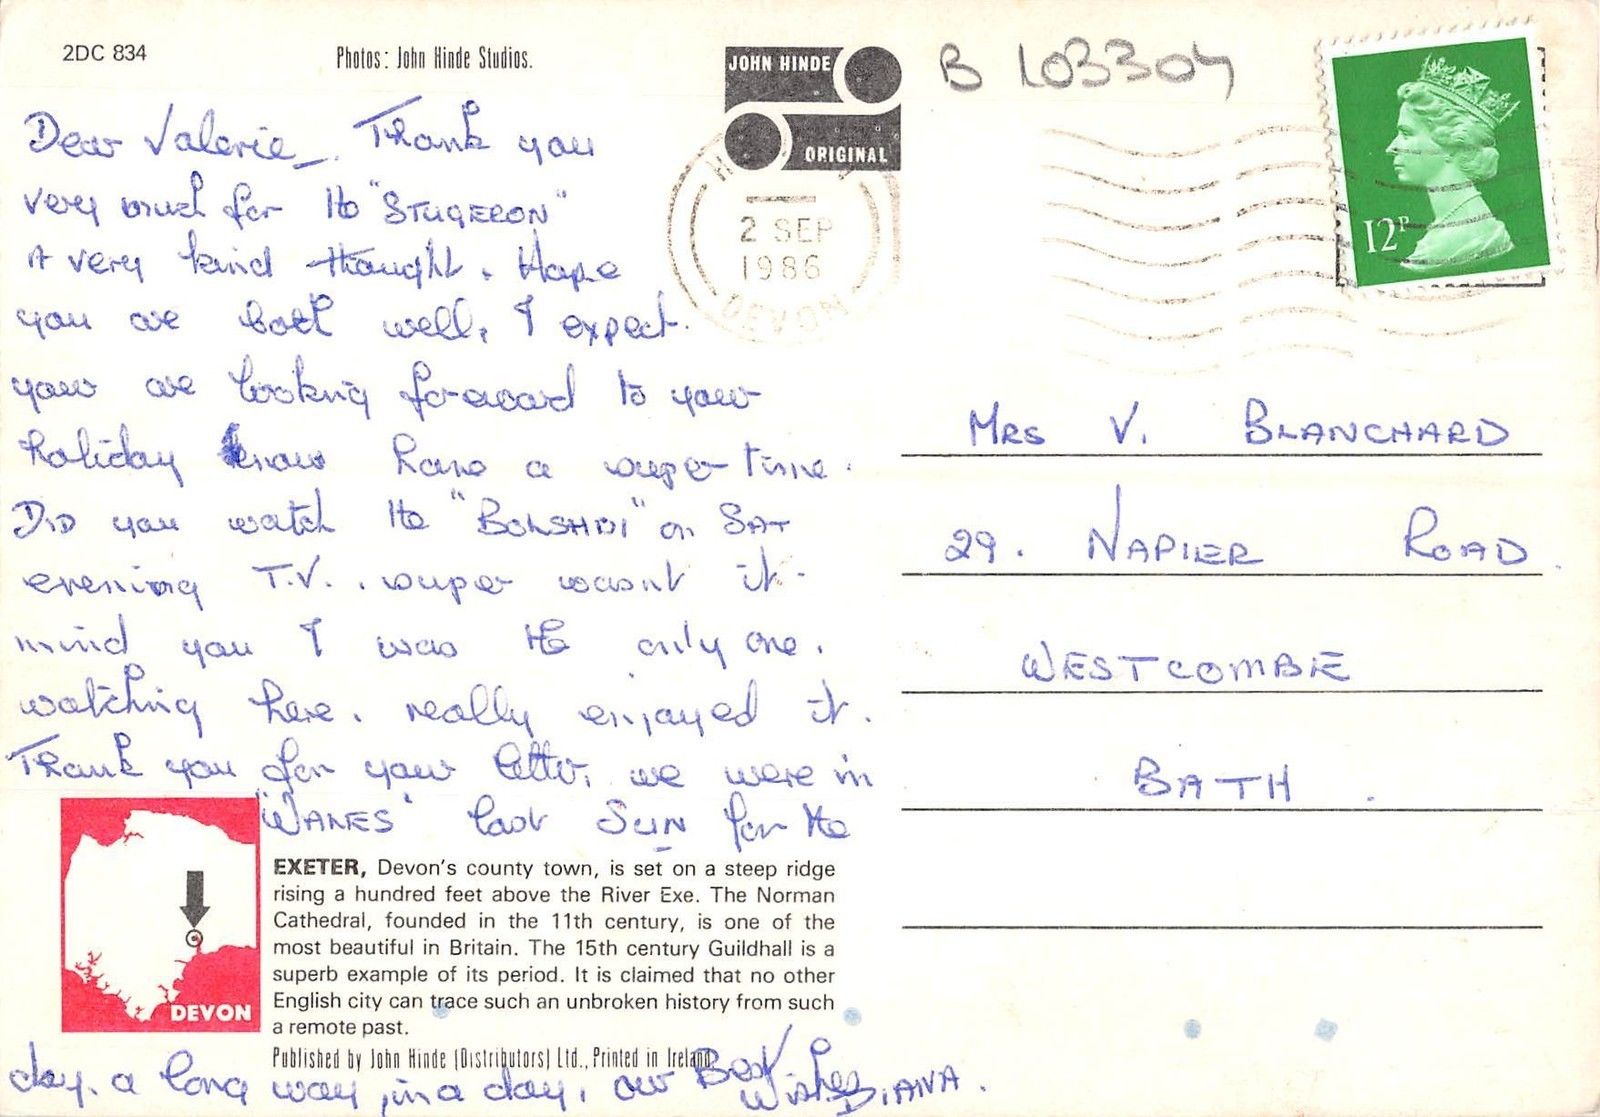 2DC 834
Photos: John Hinde Studios.
JOHN HINDE
ORIGINAL
B 103304
2 SEP
1986
DEVON
12P
Dear Valerie_. Thank you
very much for the "STUGERON"
A very kind thought. Hope
you are both well, I expect.
your are looking forward to your
holiday know have a super time.
DID you watch the "BOLSHOI" on SAT
evening T.V.. super wasnt it.
mind you I was the only one.
watching here. really enjoyed it.
Thank you for your letter, we were in
"WALES" last SUN for the
day. a long way, in a day, our Best
Wishes DIANA.
MRS V. BLANCHARD
29. NAPIER ROAD
WESTCOMBE
BATH.
DEVON
EXETER, Devon's county town, is set on a steep ridge
rising a hundred feet above the River Exe. The Norman
Cathedral, founded in the 11th century, is one of the
most beautiful in Britain. The 15th century Guildhall is a
superb example of its period. It is claimed that no other
English city can trace such an unbroken history from such
a remote past.
Published by John Hinde (Distributors) Ltd., Printed in Ireland